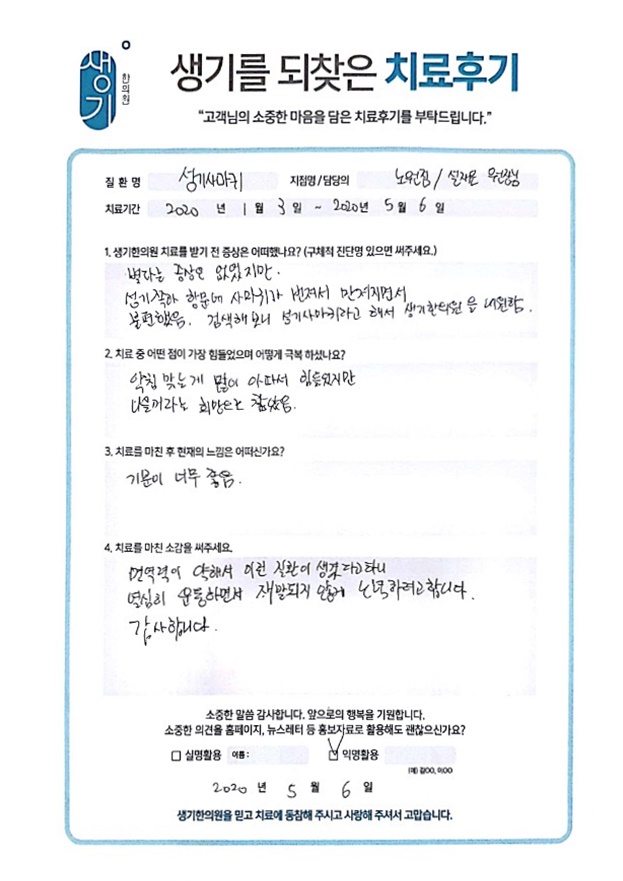 생기 한의원
생기를 되찾은 치료후기
“고객님의 소중한 마음을 담은 치료후기를 부탁드립니다.”
질 환 명 성기사마귀 지점명/담당의 노원점/ 원장님
치료기간 2020 년 1 월 3 일 ~ 2020년 5 월 6 일
1. 생기한의원 치료를 받기 전 증상은 어떠했나요? (구체적 진단명 있으면 써주세요.)
별다른 증상은 없었지만.
성기쪽하 항문에 사마귀가 번져서 만져지면서
불편했음. 검색해보니 성기사마귀라고 해서 생기한의원을 내원함.
2. 치료 중 어떤 점이 가장 힘들었으며 어떻게 극복 하셨나요?
약침 맞는게 많이 아파서 힘들었지만
나을꺼라는 희망으로 참았음.
3. 치료를 마친 후 현재의 느낌은 어떠신가요?
기분이 너무 좋음.
4. 치료를 마친 소감을 써주세요.
면역력이 약해서 이런 질환이 생겼다고하니
열심히 운동하면서 재발되지 않게 노력하려고합니다.
감사합니다.
소중한 말씀 감사합니다. 앞으로의 행복을 기원합니다.
소중한 의견을 홈페이지, 뉴스레터 등 홍보자료로 활용해도 괜찮으신가요?
□ 실명활용 이름 : ☑ 익명활용
(예) 김OO, 이OO
2020 년 5 월 6 일
생기한의원을 믿고 치료에 동참해 주시고 사랑해 주셔서 고맙습니다.